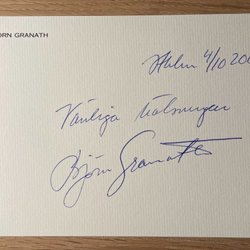 JÖRN GRANATH
Sthlm 4/10 200
Vänliga hälsningar
Björn Granath